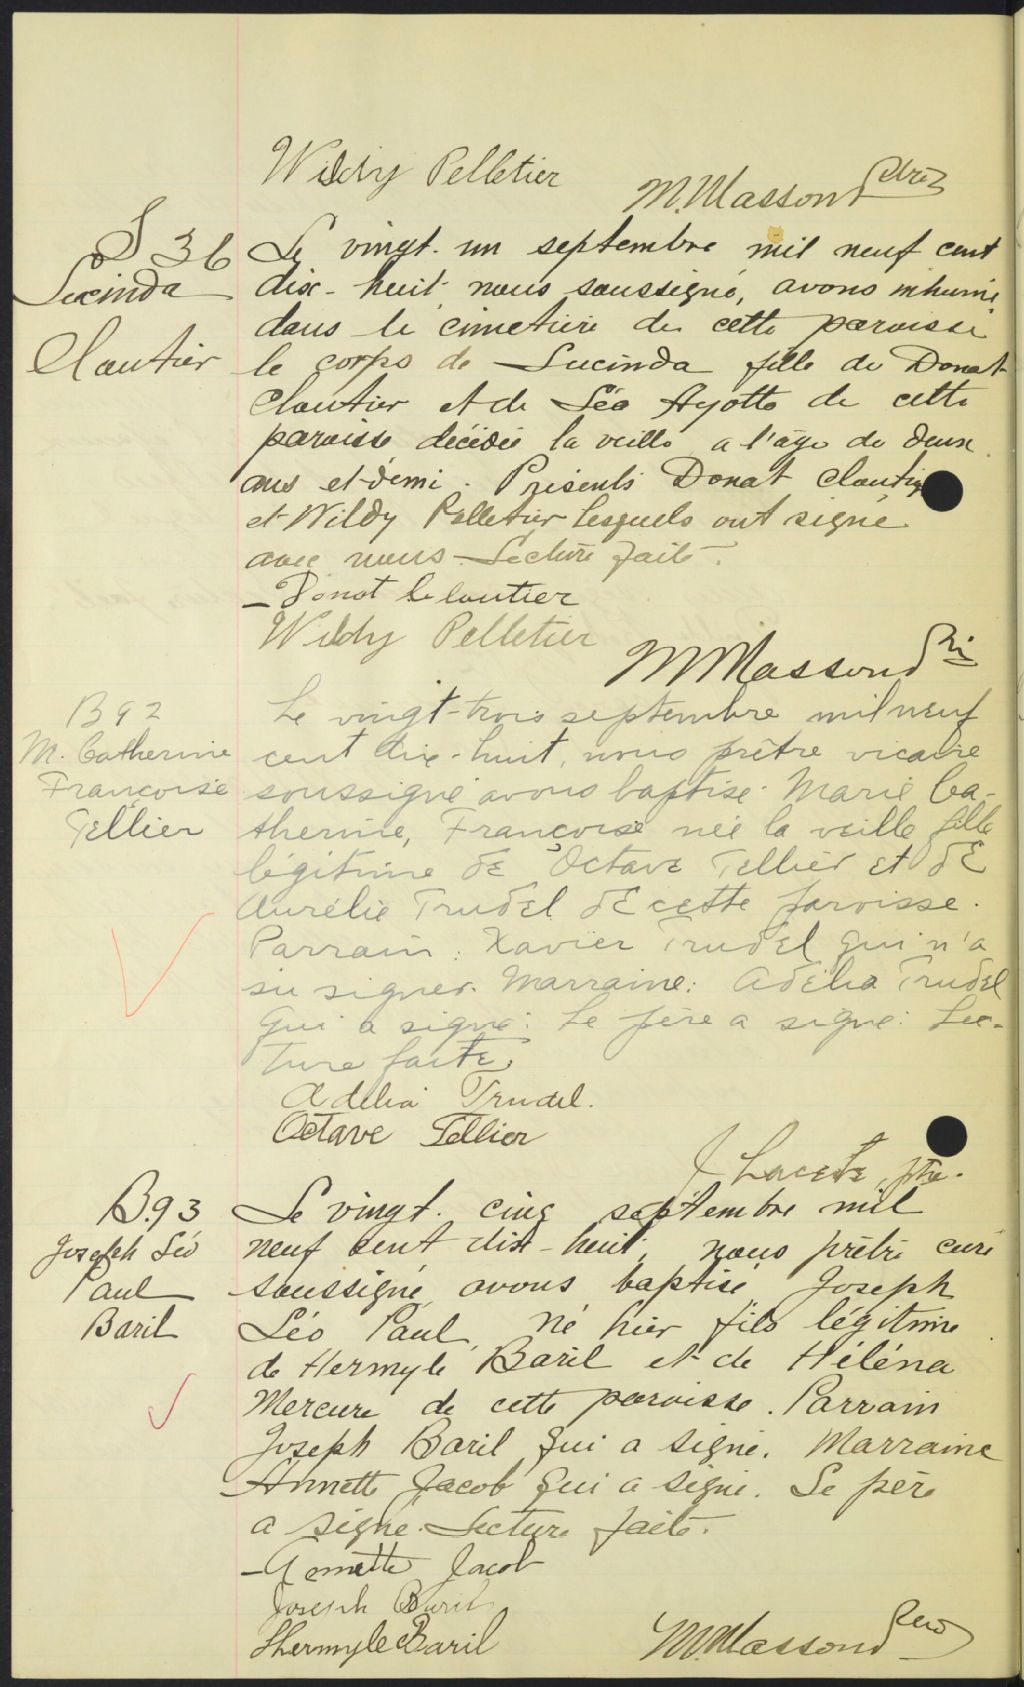 Wildy Pelletier
M. Massond ptre
S 36
Lucinda
Cloutier
Le vingt-un septembre mil neuf cent
dix-huit nous soussigné, avons inhumé
dans le cimetière de cette paroisse
le corps de Lucinda fille de Donat
Cloutier et de Léa Ayotte de cette
paroisse décédée la veille a l'âge de deux
ans et demi. Présents Donat Cloutier
et Wildy Pelletier lesquels ont signé
avec nous. Lecture faite.
Donat Cloutier
Wildy Pelletier
M Massond
B 92
M. Catherine
Françoise
Tellier
Le vingt-trois septembre mil neuf
cent dix-huit, nous prêtre vicaire
soussigné avons baptisé Marie Ca-
therine, Françoise née la veille fille
légitime de Octave Tellier et de
Aurélie Trudel de cette paroisse.
Parrain: Xavier Trudel qui n'a
su signer. Marraine: Adélia Trudel
qui a signé. Le père a signé. Lec-
ture faite.
Adelia Trudel.
Octave Tellier
J Lacerte, ptre.
B.93
Joseph Léo
Paul
Baril
Le vingt-cinq septembre mil
neuf cent dix-huit, nous prêtre curé
soussigné avons baptisé Joseph
Léo Paul né hier fils légitime
de Hermyle Baril et de Héléna
Mercure de cette paroisse. Parrain
Joseph Baril qui a signé. Marraine
Annette Jacob qui a signé. Le père
a signé. Lecture faite.
Annette Jacob
Joseph Baril
Hermyle Baril
M. Massond